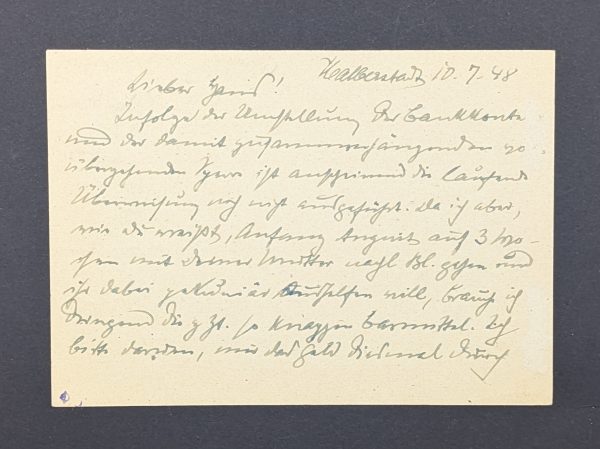 Halberstadt 10.7.48
Lieber Heins!
Infolge der Umstellung der Bankkonten
und der damit zusammenhängenden vo-
übergehenden Sperre ist anscheinend die laufende
Überweisung noch nicht ausgeführt. Da ich aber,
wie du weißt, Anfang August auf 3 Wo-
chen mit deiner Mutter nach Bl. gehen und
ihr dabei pekuniär aushelfen will, brauche ich
dringend die z. Zt. so knappen Barmittel. Ich
bitte darum, mir das Geld diesmal durch